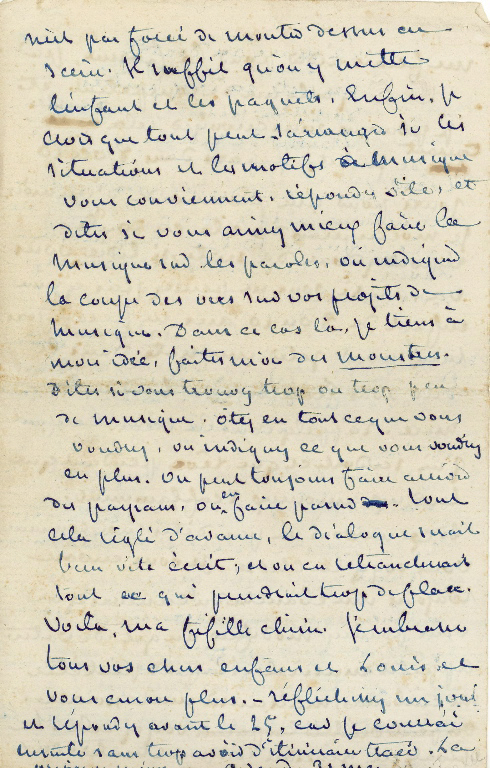 n'est pas forcé de monter dessus en
scène. Il suffit qu'on y mette
l'enfant et les paquets. Enfin, je
crois que tout peut s'arranger si les
situations et les motifs de musique
vous conviennent. répondez vite, et
dites si vous aimez mieux faire la
musique sur les paroles, ou indiquer
la coupe des vers sur vos projets de
musique. Dans ce cas là, je tiens à
mon idée, faites moi des monstres.
Dites si vous trouvez trop ou trop peu
de musique. ôtez en tout ce que vous
voudrez, ou indiquez ce que vous voudrez
en plus. On peut toujours faire
des paysans, ou en faire. Tout
cela réglé d'avance, le dialogue serait
bien vite écrit, et on en retrancherait
tout ce qui prendrait trop de place.
Voilà, ma fifille chérie. J'embrasse
tous vos chers enfans et Louis, et
vous encore plus. - réfléchissez un jour
et répondez avant le 25, car je courrai
ensuite sans trop avoir d'itinéraire tracé. La